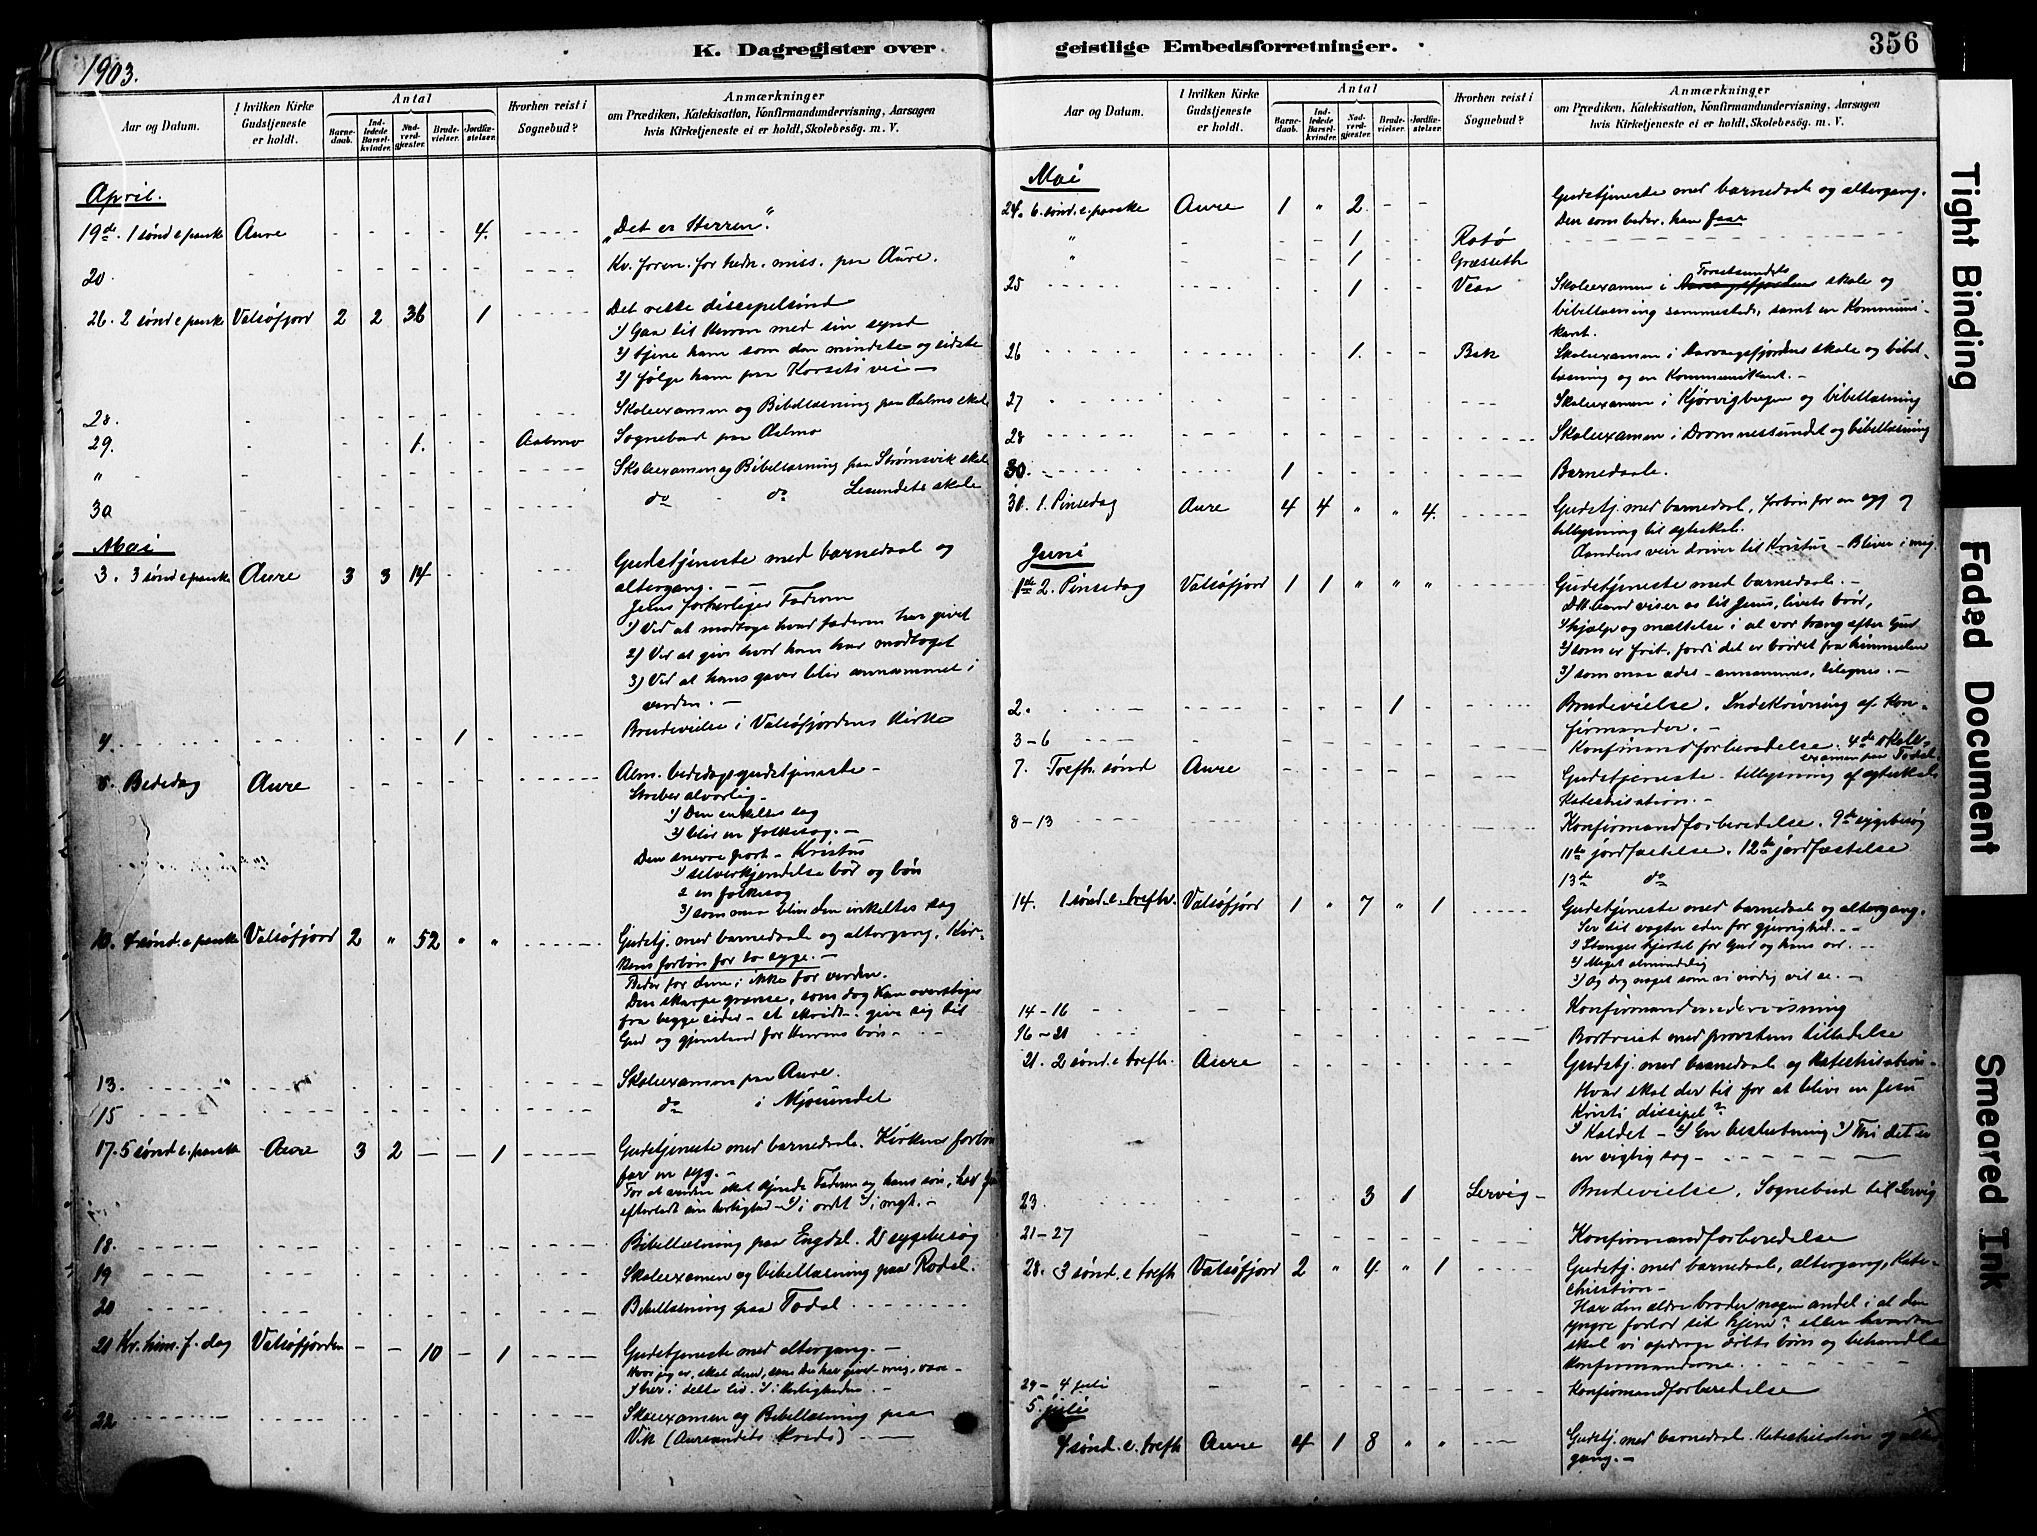 1903.
K. Dagregister over
Aar og Datum.
I hvilken Kirke Gudstjeneste er holdt.
Antal
Barnedaab.
Indledede Barselkvinder.
Nadverdgjæster.
Brudevielser.
Jordfæstelser.
Hvorhen reist i Sognebud?
Anmærkninger
om Prædiken, Katekisation, Konfirmandundervisning, Aarsagen
hvis Kirketjeneste ei er holdt, Skolebesög. m. V.
April.
19de. 1 sønd e paaske Aure - - - - 4. "Det er Herren".
20. - - - - - Kv. foren. for hedn. miss. paa Aure.
26. 2 sønd e paaske Valsøfjord 2 2 36 1 Det rette discipelsind
1) Gaa til Herren med sin synd
2) tjene ham som den mindste og sidste
3) følge ham paa Korsets vei -
28. - - - - - Skoleexamen og Bibellæsning paa Aalmo skole
29. - - 1. - - Aalmo Sognebud paa Aalmo
" - Skoleexamen og Bibellæsning paa Strømsvik skole
30 - do - do Lesundets skole
Mai
3. 3 sønd e paaske Aure 3 3 14 - - Gudstjeneste med barnedaab og
altergang. - -
Jesus forherliger Faderen
1) Ved at modtage hvad faderen har givet
2) Ved at give hvad han har modtaget
3) Ved at hans gaver blir annammet i
verden. -
4. - - - 1 - Brudevielse i Valsøfjordens Kirke
8. Bededag Aure - - - - Alm. bededagsgudstjeneste -
Stræber alvorlig.
1) Den enkeltes sag
2) blir en folkesag. -
Den snevre port - Kristus
1) selverkjendelse bod og bøn
2 en folkesag
3) som maa blive den enkeltes sag
10. 4 sønd. e paaske Valsøfjord 2 " 52 " " Gudstj. med barnedaab og altergang. Kir-
kens forbøn for to syge. -
Beder for dem; ikke for verden.
Den skarpe grænse, som dog kan overstiges
fra begge sider - et skridt - give sig til
Gud og gjenstand for Herrens bøn -
13. - - - - - Skoleexamen paa Aure.
15 - - - - - do i Mjosundet
17. 5 sønd e. paaske Aure 3 2 - - 1 Gudstjeneste med barnedaab. Kirkens forbøn
for en syg. -
For at verden skal kjende Faderen og hans søn, har
efterladt sin herlighed - 1) i ordet 2) i
18. - - - - - Bibellæsning paa Engdal. 2 sygebesøg
19 - - - - - Skoleexamen og bibellæsning paa Rodal.
20 - - - - - Bibellæsning paa Todal
21 Kr. him. f. dag Valsøfjorden - - 10 - 1 Gudstjeneste med altergang. -
Hvor jeg er, skal dem, som du har givet mig, være -
1) her i dette liv. 2) i herligheden. -
22 - - - - - Skoleexamen og Bibellæsning paa
Vik (Auresundets kreds) -
geistlige Embedsforretninger.
356
Aar og Datum.
I hvilken Kirke Gudstjeneste er holdt.
Antal
Barnedaab.
Indledede Barselkvinder.
Nadverdgjæster.
Brudevielser.
Jordfæstelser.
Hvorhen reist i Sognebud?
Anmærkninger
om Prædiken, Katekisation, Konfirmandundervisning, Aarsagen
hvis Kirketjeneste ei er holdt, Skolebesög. m. V.
Mai
24. 6. sønd. e. paaske Aure 1 " 2. - - Gudstjeneste med barnedaab og altergang.
Den som beder, han faar
" - - - 1. Rotø
" - - - 1 Græsseth
25 - - 1 - - Vean Skoleexamen i Torsetsundets skole og
bibellæsning sammesteds, samt en Kommuni-
kant.
26 - - 1. - - Bak Skoleexamen i Aarvaagsfjordens skole og bibel-
læsning og en Kommunikant. -
27 - - - - - Skoleexamen i Kjørvigbugen og bibellæsning
28 - - - - - Skoleexamen i Dromnessundet og bibellæsning
30. - 1 - - - - Barnedaab.
30. 1. Pinsedag Aure 4 4 " " 4. Gudstj. med barnedaab, forbøn for en syg og
tillysning til egteskab.
Aandens veir driver til Kristus - Bliver i mig.
Juni
1ste 2. Pinsedag Valsøfjord 1 1 " " " Gudstjeneste med barnedaab. -
Det aand viser os til Jesus, livets brød,
1) hjælp og mættelse i al vor trang efter Gud
2) som er frit, fordi det er brødet fra himmelen
3) som maa ædes - annammes, tilegnes. -
2. - - - 1 - Brudevielse. Indskrivning af kon-
firmander. -
3-6 - - - - - Konfirmandforberedelse. 4de skole-
examen paa Todal.
7. Trefh. sønd Aure Gudstjeneste - tillysning af egteskab
Katechisation. -
8-13 Konfirmandforberedelse. 9de sygebesøg
11te jordfæstelse. 12te jordfæstelse
13de do
14. 1 sønd. e. trefh. Valsøfjord 1 " 7 " 1 Gudstjeneste med barnedaab og altergang.
Ser til vogter eder for gjerrighed. - -
1) Stænger hjertet for Gud og hans ord. -
2) Meget almindelig
3) Og dog noget som vi nødig vil se. -
14-16 - - - - - Konfirmandundervisning
16-21 Bortreist med provstens tilladelse
21. 2 sønd. e trefh. Aure Gudstj. med barnedaab og Katechisation -
Hvad skal der til for at blive en Jesu
Kristi discipel?
1) Kaldet - 2) En beslutning 3) Thi det er
en vigtig sag -
23 - - 3 1 Lervig - Brudevielse. Sognebud til Lervig
21-27 - - - - - Konfirmandforberedelse
28. 3 sønd. e trefh Valsøfjord 2 " 4. " 1 Gudstj. med barnedaab, altergang, Kate-
chisation -
Har din ældre broder nogen andel i at den
yngre forlod sit hjem? eller hvordan
skal vi opdrage døbte børn og behandle
Konfirmanderne.
29-4 juli - - - - - Konfirmandforberedelse
5. juli
4 sønd. e. trefh Aure 4 1 8 " " Gudstj. med barnedaab. Katechisation og alter-
gang. -
Tight Binding
Faded Document
Smeared Ink